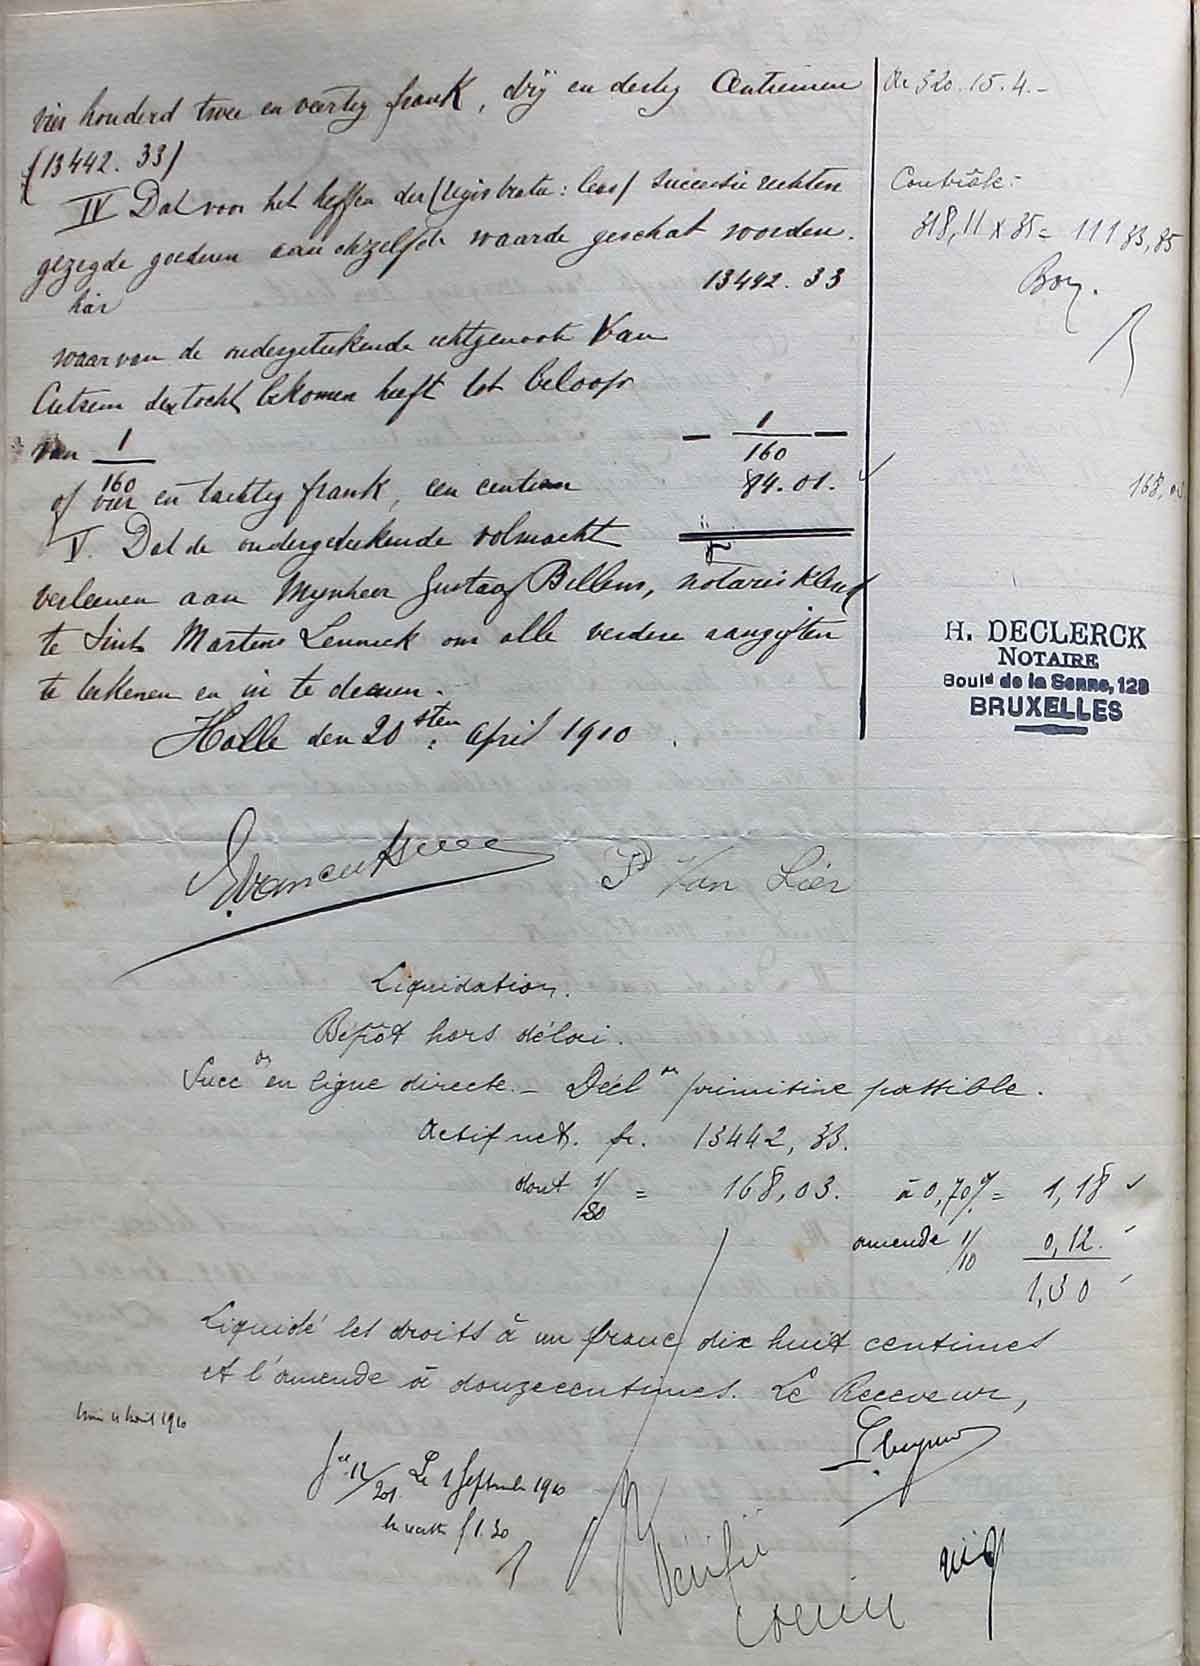 vier honderd twee en veertig frank, drij en dertig Centiemen
(13442.33)
IV Dat voor het heffen der (registratie: lees) successie rechten
gezegde goederen aan dezelfde waarde geschat worden.
hier 13442.33
waarvan de ondergeteekende echtgenoote Van
Cutsem der tocht bekomen heeft tot beloop
van 1/160 — 1/160 —
of vier en tachtig frank, een centiem 84.01.
V. Dat de ondergeteekende volmacht
verleenen aan Mynheer Gustaaf Billens, notaris klerk
te Sint Martens Lennick om alle verdere aangiften
te teekenen en in te dienen.
Halle den 20sten April 1910
Ar 520.15.4.-
Contrôle:
318,11 x 35 = 11133,85
Bon.
168,03
H. DECLERCK
NOTAIRE
Bould de la Senne, 128
BRUXELLES
Evancutsem
Van Lier
Liquidation.
Dépôt hors délai.
Succon en ligne directe - Déclon primitive passible.
Actif net. fr. 13442,33.
dont 1/80 = 168,03. à 0,70% = 1,18
amende 1/10 0,12.
1,30
Liquidé les droits à un franc dix huit centimes
et l'amende à douze centimes. Le Receveur,
août 1910
12/201 Le 1 Septembre 1910
f 1.30
Vérifié